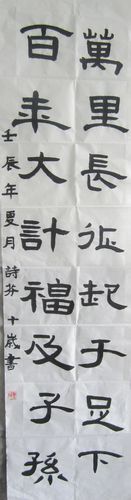 萬里長征起于足下
百来大計福及子孫
壬辰年夏月 詩芬 十歲書